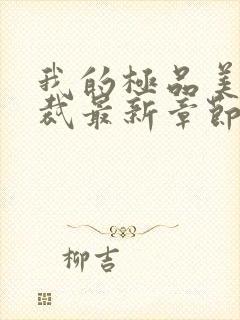 我的極品美
裁最新章節
柳吉